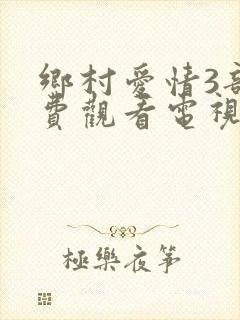 鄉村愛情3部
費觀看電視
極樂夜箏